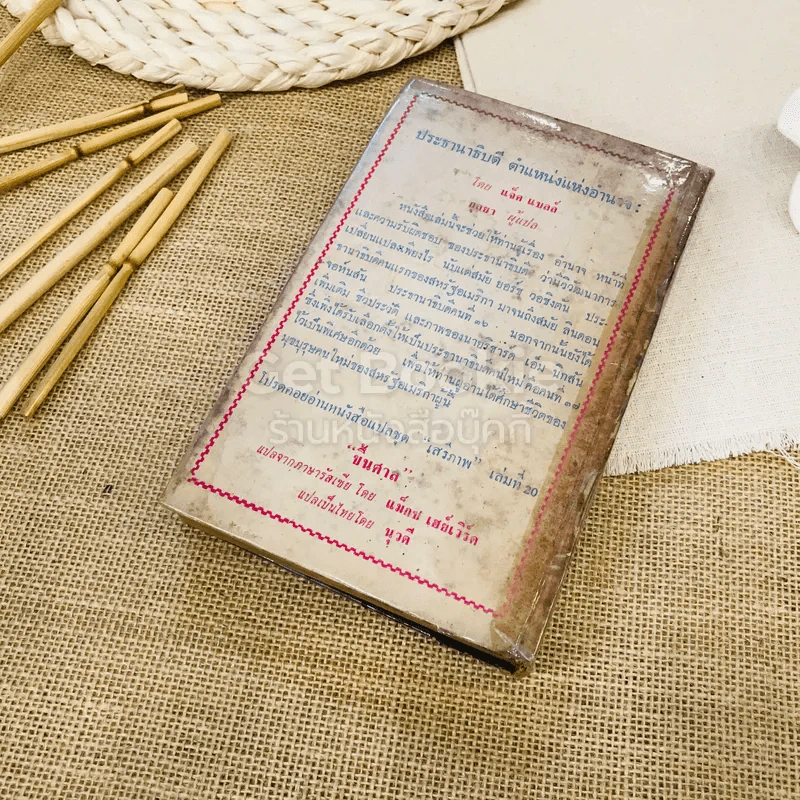 ประธานาธิบดี ตำแหน่งแห่งอำนาจ :
โดย แจ็ค แบลล์
ผู้แปล
หนังสือเล่มนี้จะช่วยให้ท่านรู้เรื่อง อำนาจ หน้าที่
และความรับผิดชอบ ของประธานาธิบดี ว่ามีวิวัฒนาการ
เปลี่ยนแปลงเพียงไร นับแต่สมัย ยอร์ช วอชิงตัน ประ-
ธานาธิบดีคนแรกของสหรัฐอเมริกา มาจนถึงสมัย ลินดอน
จอห์นสัน ประธานาธิบดีคนที่ ๓๖ นอกจากนั้นยังได้
เพิ่มเติม ชีวประวัติ และภาพของนายริชาร์ด เอ็ม นิกสัน
ซึ่งเพิ่งได้รับเลือกตั้งให้เป็นประธานาธิบดีคนใหม่ คือคนที่ ๓๗
ไว้เป็นพิเศษอีกด้วย เพื่อให้ท่านผู้อ่านได้ศึกษาชีวิตของ
มุขบุรุษคนใหม่ของสหรัฐอเมริกาผู้นี้
โปรดคอยอ่านหนังสือแปลชุด "เสรีภาพ" เล่มที่ 20
"ขึ้นศาล"
แปลจากภาษารัสเซีย โดย แม็กซ์ เฮย์เวิร์ด
แปลเป็นไทยโดย นุวดี
Get Bookie
ร้านหนังสือบุ๊คกี้